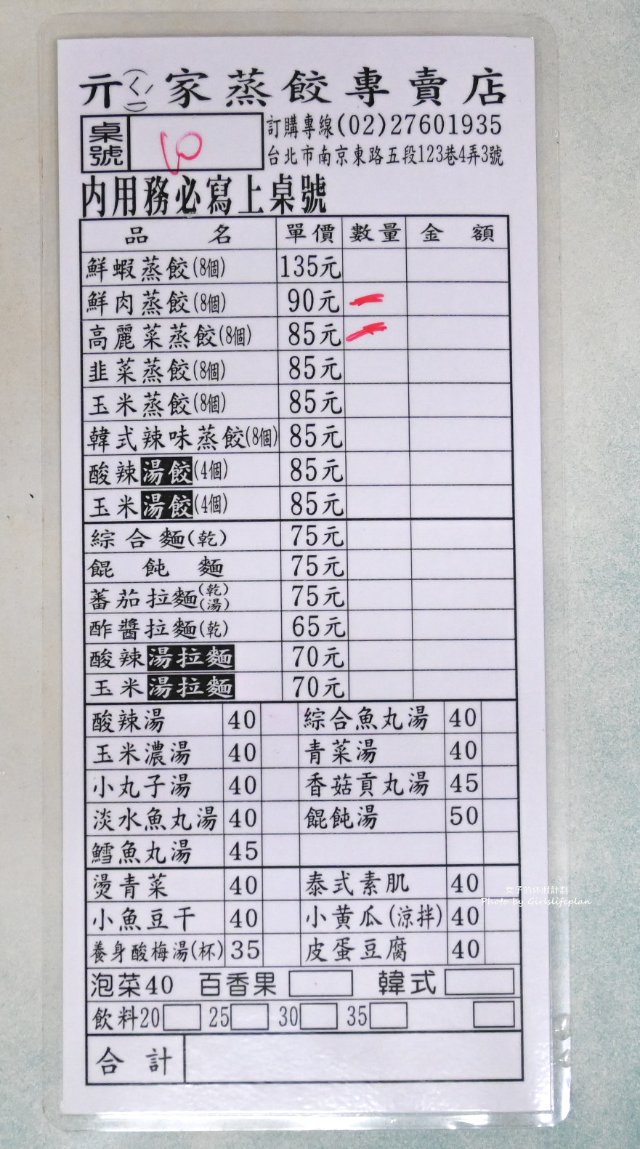 亓(ㄑㄧˊ)家蒸餃專賣店
桌號
訂購專線(02)27601935
台北市南京東路五段123巷4弄3號
內用務必寫上桌號
品名 單價 數量 金額
鮮蝦蒸餃(8個) 135元
鮮肉蒸餃(8個) 90元 一
高麗菜蒸餃(8個) 85元 一
韭菜蒸餃(8個) 85元
玉米蒸餃(8個) 85元
韓式辣味蒸餃(8個) 85元
酸辣湯餃(4個) 85元
玉米湯餃(4個) 85元
綜合麵(乾) 75元
餛飩麵 75元
蕃茄拉麵(乾)(湯) 75元
酢醬拉麵(乾) 65元
酸辣湯拉麵 70元
玉米湯拉麵 70元
酸辣湯 40 綜合魚丸湯 40
玉米濃湯 40 青菜湯 40
小丸子湯 40 香菇貢丸湯 45
淡水魚丸湯 40 餛飩湯 50
鱈魚丸湯 45
燙青菜 40 泰式素肌 40
小魚豆干 40 小黃瓜(涼拌) 40
養身酸梅湯(杯) 35 皮蛋豆腐 40
泡菜40 百香果 韓式
飲料20 25 30 35
合計
女子的休假計劃
Photo by Girlslifeplan